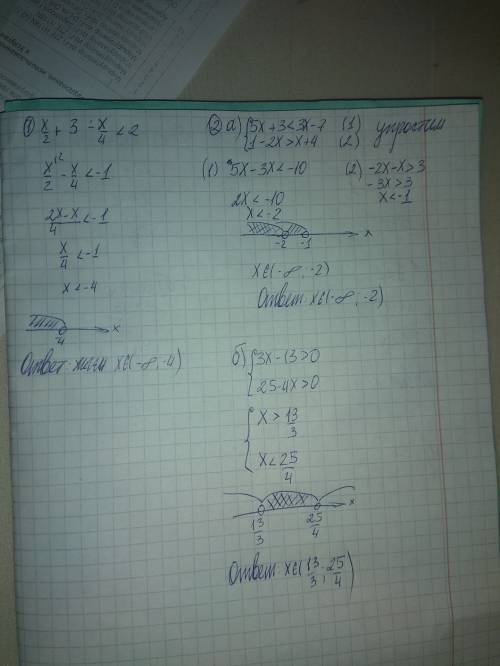 ① x/2 + 3 - x/4 < 2
x/2 - x/4 < -1
(2x-x)/4 < -1
x/4 < -1
x < -4
4 x
Ответ: x∈(-∞; -4)
② а) { 5x+3<3x-7 (1) упростим
1-2x>x+4 (2)
(1) 5x-3x<-10 (2) -2x-x>3
-3x>3
2x<-10 x<-1
x<-2
-2 -1 x
x∈(-∞; -2)
Ответ: x∈(-∞; -2)
б) { 3x-13>0
25-4x>0
{ x > 13/3
x < 25/4
13/3 25/4 x
Ответ: x∈(13/3; 25/4)